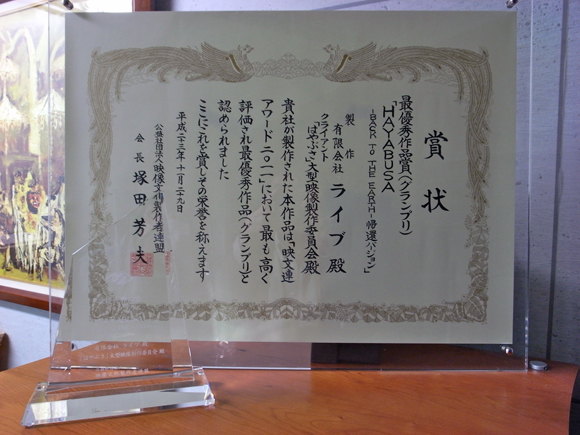 賞状
最優秀作品賞(グランプリ)
「HAYABUSA
-BACK TO THE EARTH-帰還バージョン」
製作
有限会社 ライブ 殿
クライアント
「はやぶさ」大型映像製作委員会殿
貴社が製作された本作品は「映文連
アワード二〇一一」において最も高く
評価され最優秀作品(グランプリ)と
認められました
ここにこれを賞しその栄誉を称えます
平成二十三年十一月二十九日
公益社団法人映像文化製作者連盟
会長 塚田芳夫